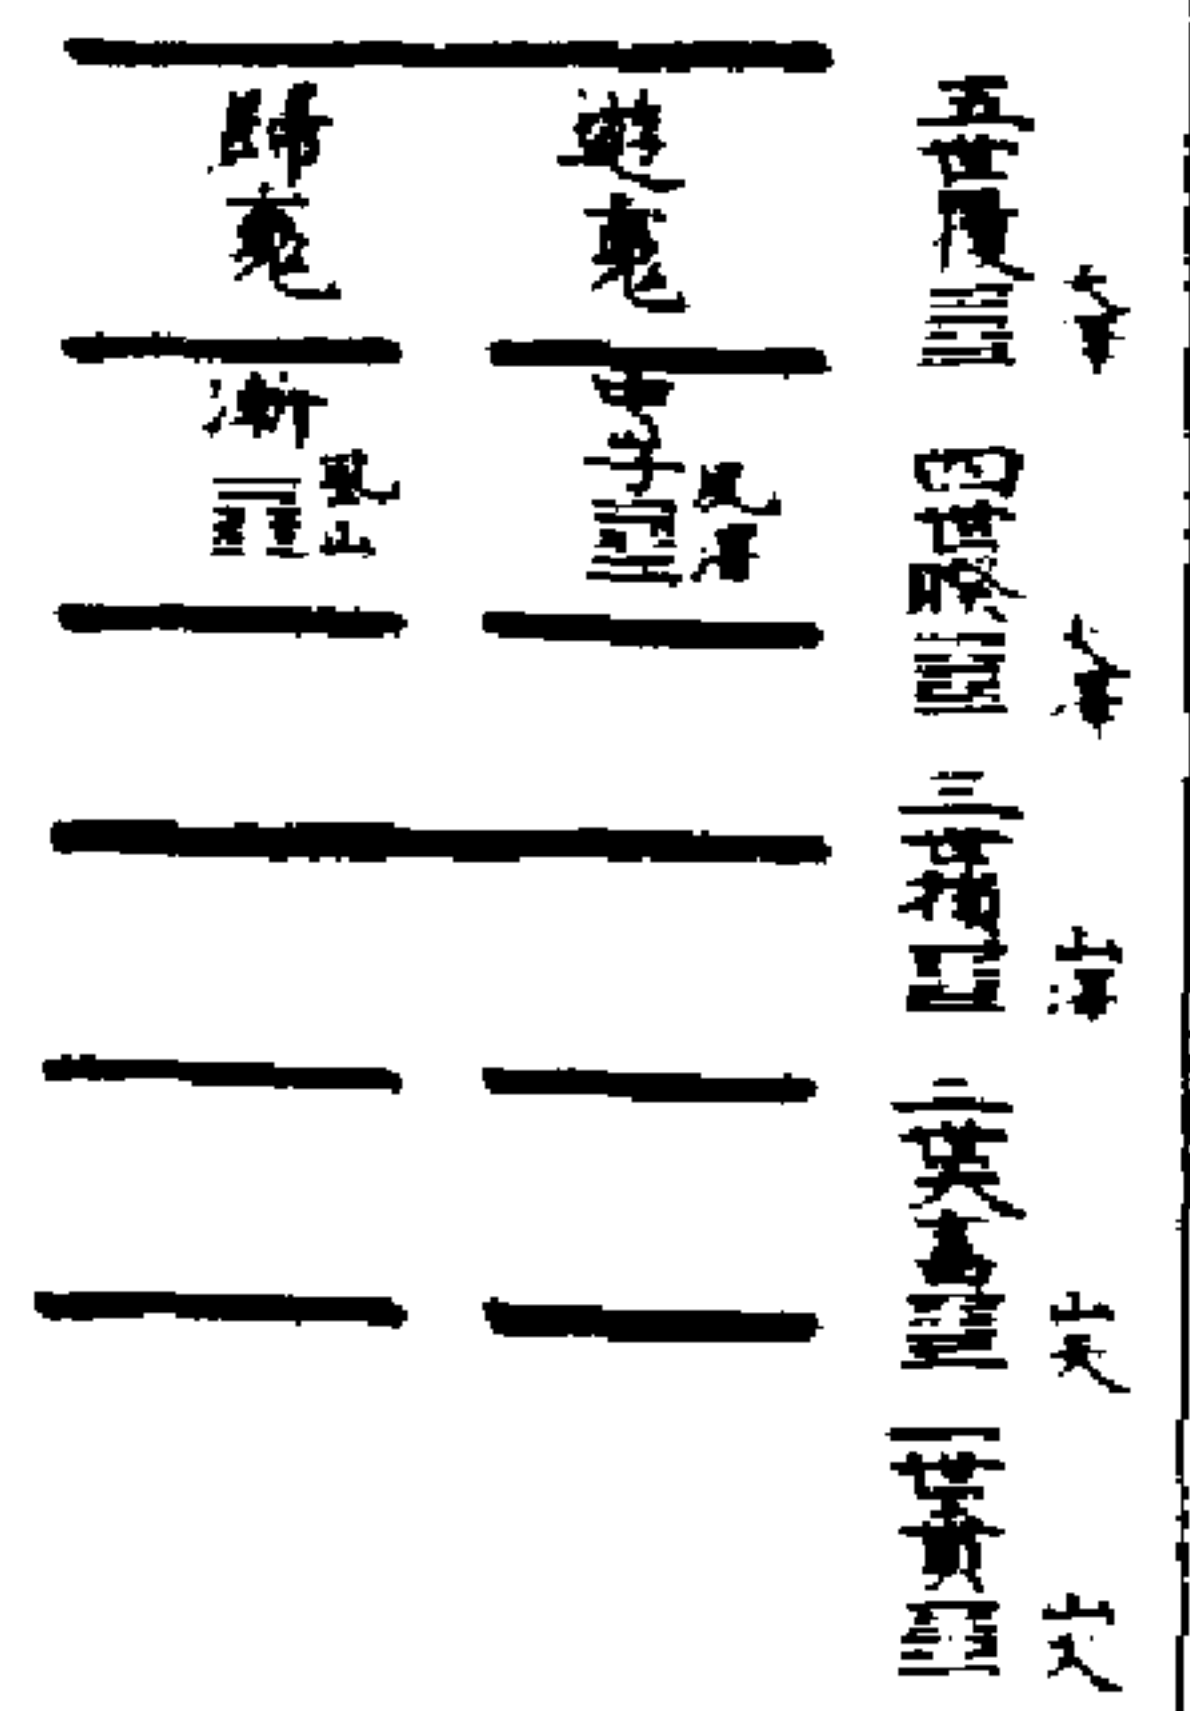 五世履
天澤
四世睽
火澤
三世損
山澤
二世大畜
山天
一世賁
山火
遊魂
中孚
風澤
歸魂
漸
風山